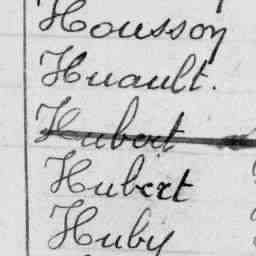 Housson
Huault.
Hubert
Hubert
Huby